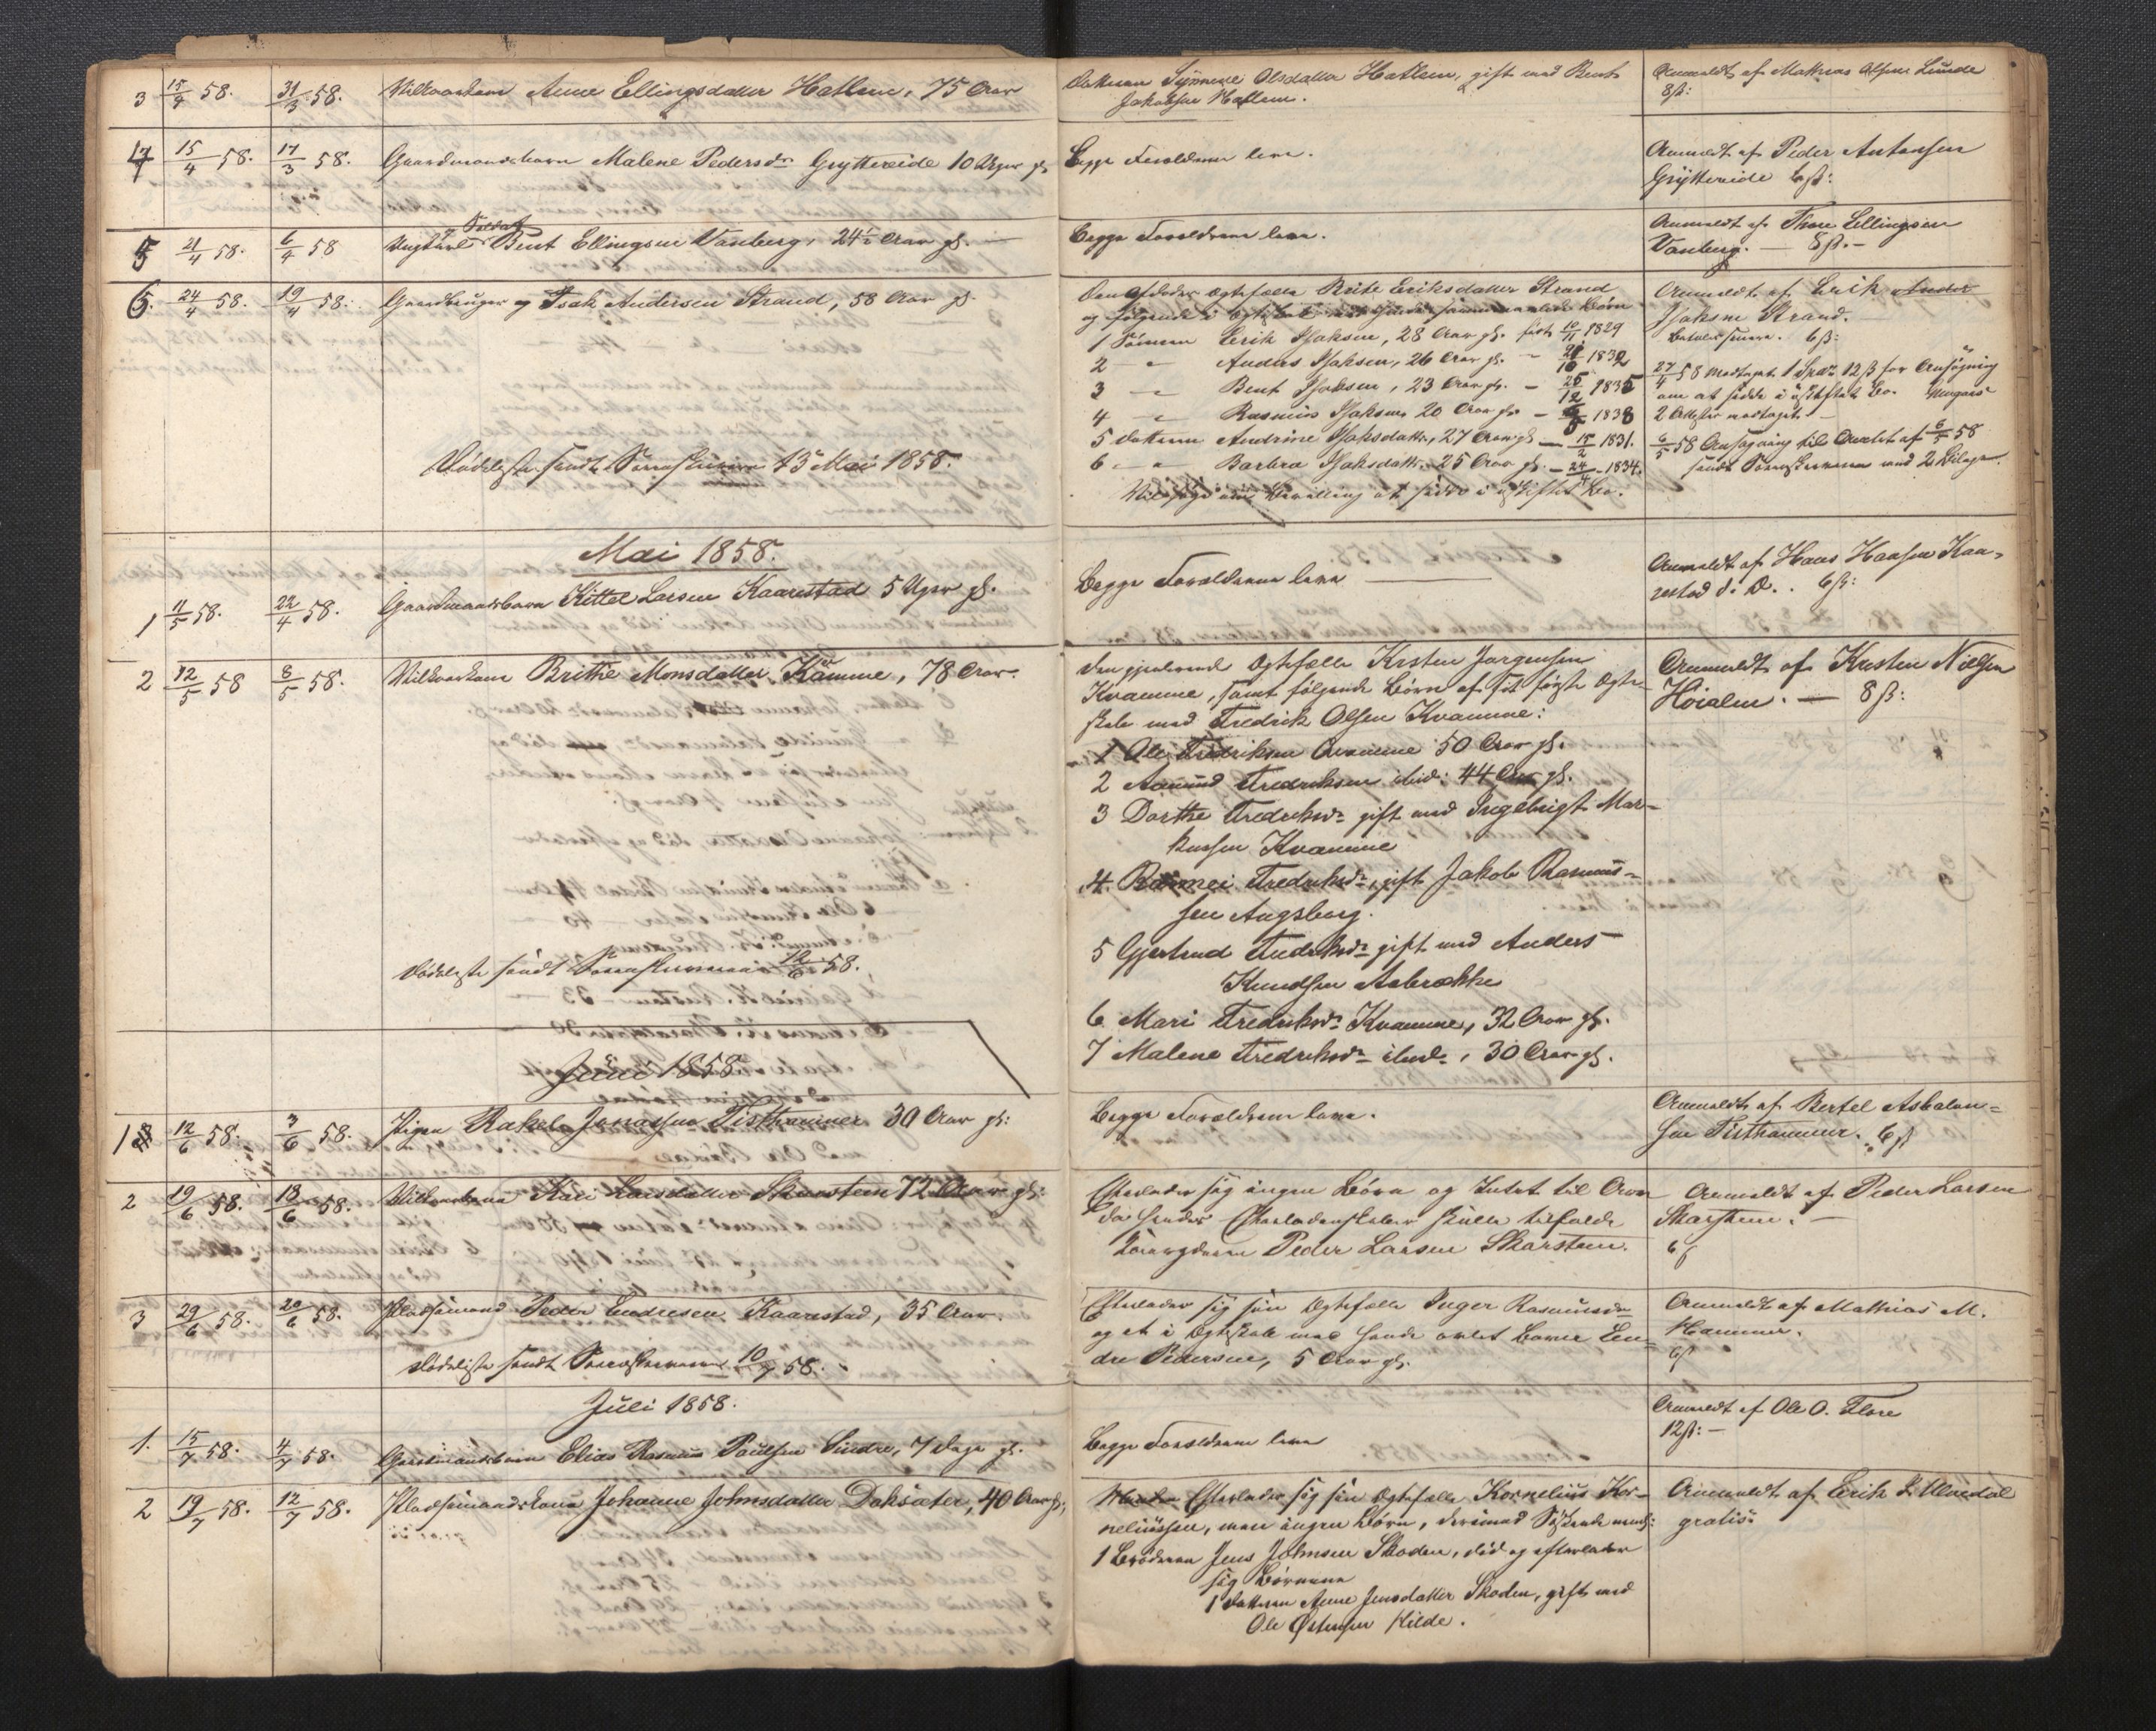 3 15/4 58. 31/3 58. Vilkaarskone Anne Ellingsdatter Hatlem, 75 Aar
Datteren Synneve Olsdatter Hatlem, gift med Bent
Jakobsen Hatlem.
Anmeldt af Mathias Olsen Lunde
8 ß:
4 15/4 58. 17/3 58. Gaardmandsbarn Malene Pedersdr Gryttereide 10 Uger gl.
Begge Forældrene leve.
Anmeldt af Peder Antonsen
Gryttereide 6 ß:
Soldat
5 21/4 58. 6/4 58 Ungkarl Bent Ellingsen Vanberg, 24½ Aar gl.
Begge Forældrene leve.
Anmeldt af Thore Ellingsen
Vanberg. — 8 ß. –
6. 24/4 58. 19/4 58. Gaardbruger og Isak Andersen Strand, 58 Aar gl.
Den Afdødes Ægtefælle Brite Eriksdatter Strand
og følgende i Ægteskab med hende sammenavlede Børn
1 Sønnen Erik Isaksen, 28 Aar gl. født 10/11 1829
2 – " Anders Isaksen, 26 Aar gl. – 21/10 1832
3 – " Bent Isaksen, 23 Aar gl. – 25/12 1835
4 – " Rasmus Isaksen 20 Aar gl. – 1838
5 Datteren Andrine Isaksdatter, 27 Aar gl – 15/2 1831.
6 – " Barbra Isaksdatt. 25 Aar gl. – 24/4 1834.
Vil søge om Bevilling at sidde i uskiftet Bo.
Anmeldt af Erik Ander
Isaksen Strand.
Betales senere. 6 ß:
27/4 58 modtaget 1 Spd. 12 ß for Ansøgning
om at sidde i uskiftet Bo.
2 Attester modtaget. –
6/5 58 Ansøgning til Amtet af 6/5 58
sendt Sorenskriveren med 2 Bilage.
Dødsliste sendt Sorenskriveren 13 Mai 1858.
Mai 1858.
1 11/5 58. 22/4 58. Gaardmandsbarn Kittel Larsen Kaarestad 5 Uger gl.
Begge Forældrene leve
Anmeldt af Hans Hansen Kaa=
restad d. D. . 6 ß:
2 12/5 58 8/5 58. Vilkaarskone Brithe Monsdatter Kvamme, 78 Aar.
Den gjenlevende Ægtefælle Kristen Jørgensen
Kvamme, samt følgende Børn af sit første Ægte-
skab med Fredrik Olsen Kvamme:
1 Ole Fredriksen Kvamme 50 Aar gl.
2 Amund Fredriksen ibid: 44 Aar gl.
3 Dorthe Fredriksdr gift med Ingebrigt Mar=
kussen Kvamme
4. Rasmei Fredriksdr, gift Jakob Rasmus=
sen Augsburg.
5 Gjertrud Fredriksdr gift med Anders
Knudsen Aabrække
6 Mari Fredriksdr Kvamme, 32 Aar gl.
7 Malene Fredriksdr ibid., 30 Aar gl.
Anmeldt af Kristen Nielsen
Høialm. — 8 ß:
Dødsliste sendt Sorenskriveren 12/6 58.
Juni 1858.
1 12/6 58. 3/6 58. Pigen Rakel Jonassen Tisthammer 30 Aar gl:
Begge Forældrene leve.
Anmeldt af Bertel Asbalon=
sen Tisthammer. 6 ß
2 19/6 58. 18/6 58. Vilkaarskone Kari Larsdatter Skarsteen 72 Aar gl:
Efterlader sig ingen Børn og Intet til Arv
da hendes Efterladenskaber skulle tilfalde
Peder Larsen Skarsteen.
Anmeldt af Peder Larsen
Skarsteen. –
6 ß
3 29/6 58. 20/6 58. Pladsemand Peder Endresen Kaarestad, 35 Aar.
Efterlader sig sin Ægtefælle Inger Rasmusdr
og et i Ægteskab med hende avlet Barn En=
dre Pedersen, 5 Aar gl.
Anmeldt af Mathias M.
Hammer.
6 ß
Dødsliste sendt Sorenskriveren 10/7 58.
Juli 1858.
1. 15/7 58. 4/7 58. Gaardmandsbarn Elias Rasmus Paulsen Sindre, 7 Dage gl.
Begge Forældrene leve
Anmeldt af Ole O. Flore
12 ß: –
2 19/7 58. 12/7 58. Pladsemandskone Johanne Johnsdatter Doksæter, 40 Aar gl,
Efterlader sig sin Ægtefælle Kornelius Kor=
neliussen, men ingen Børn, derimod Søskende nemlig:
1 Broderen Jens Johnsen Skoden, død og efterlader
sig Børnene
1 Datteren Anne Jensdatter Skoden, gift med
Ole Østensen Hilde.
Anmeldt af Erik L Ulvedal
gratis